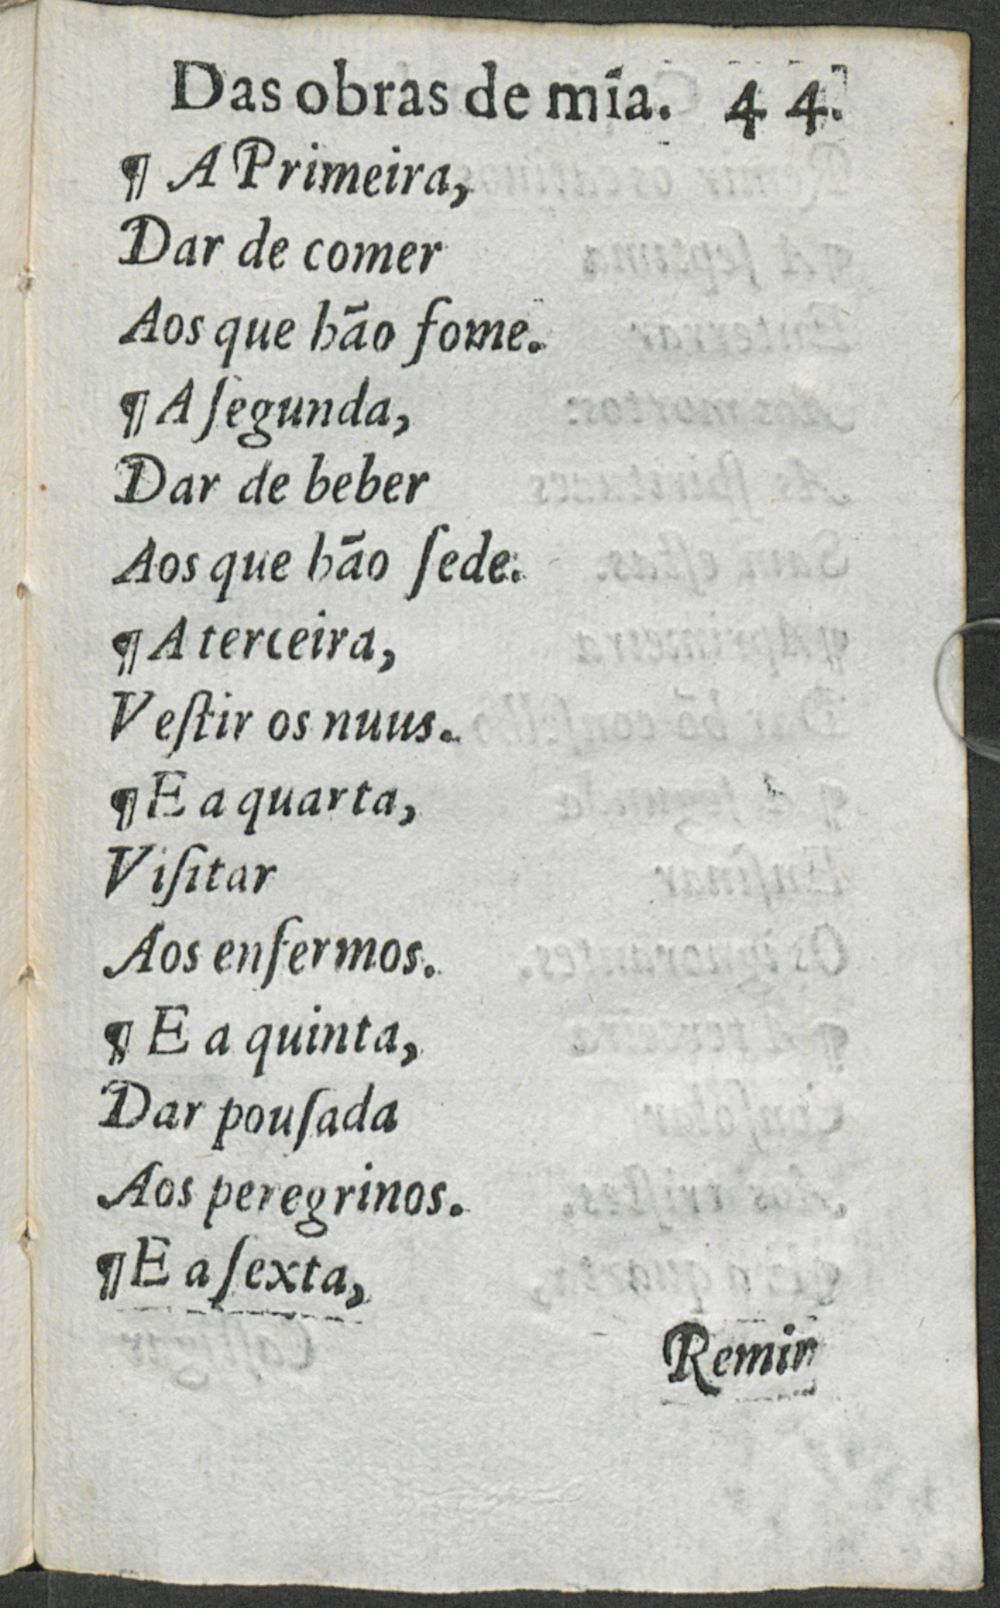 Das obras de mĩa. 44.
¶ A Primeira,
Dar de comer
Aos que hão fome.
¶ A ſegunda,
Dar de beber
Aos que hão ſede.
¶ A terceira,
Veſtir os nuus.
¶ E a quarta,
Viſitar
Aos enfermos.
¶ E a quinta,
Dar pouſada
Aos peregrinos.
¶ E a ſexta,
Remir